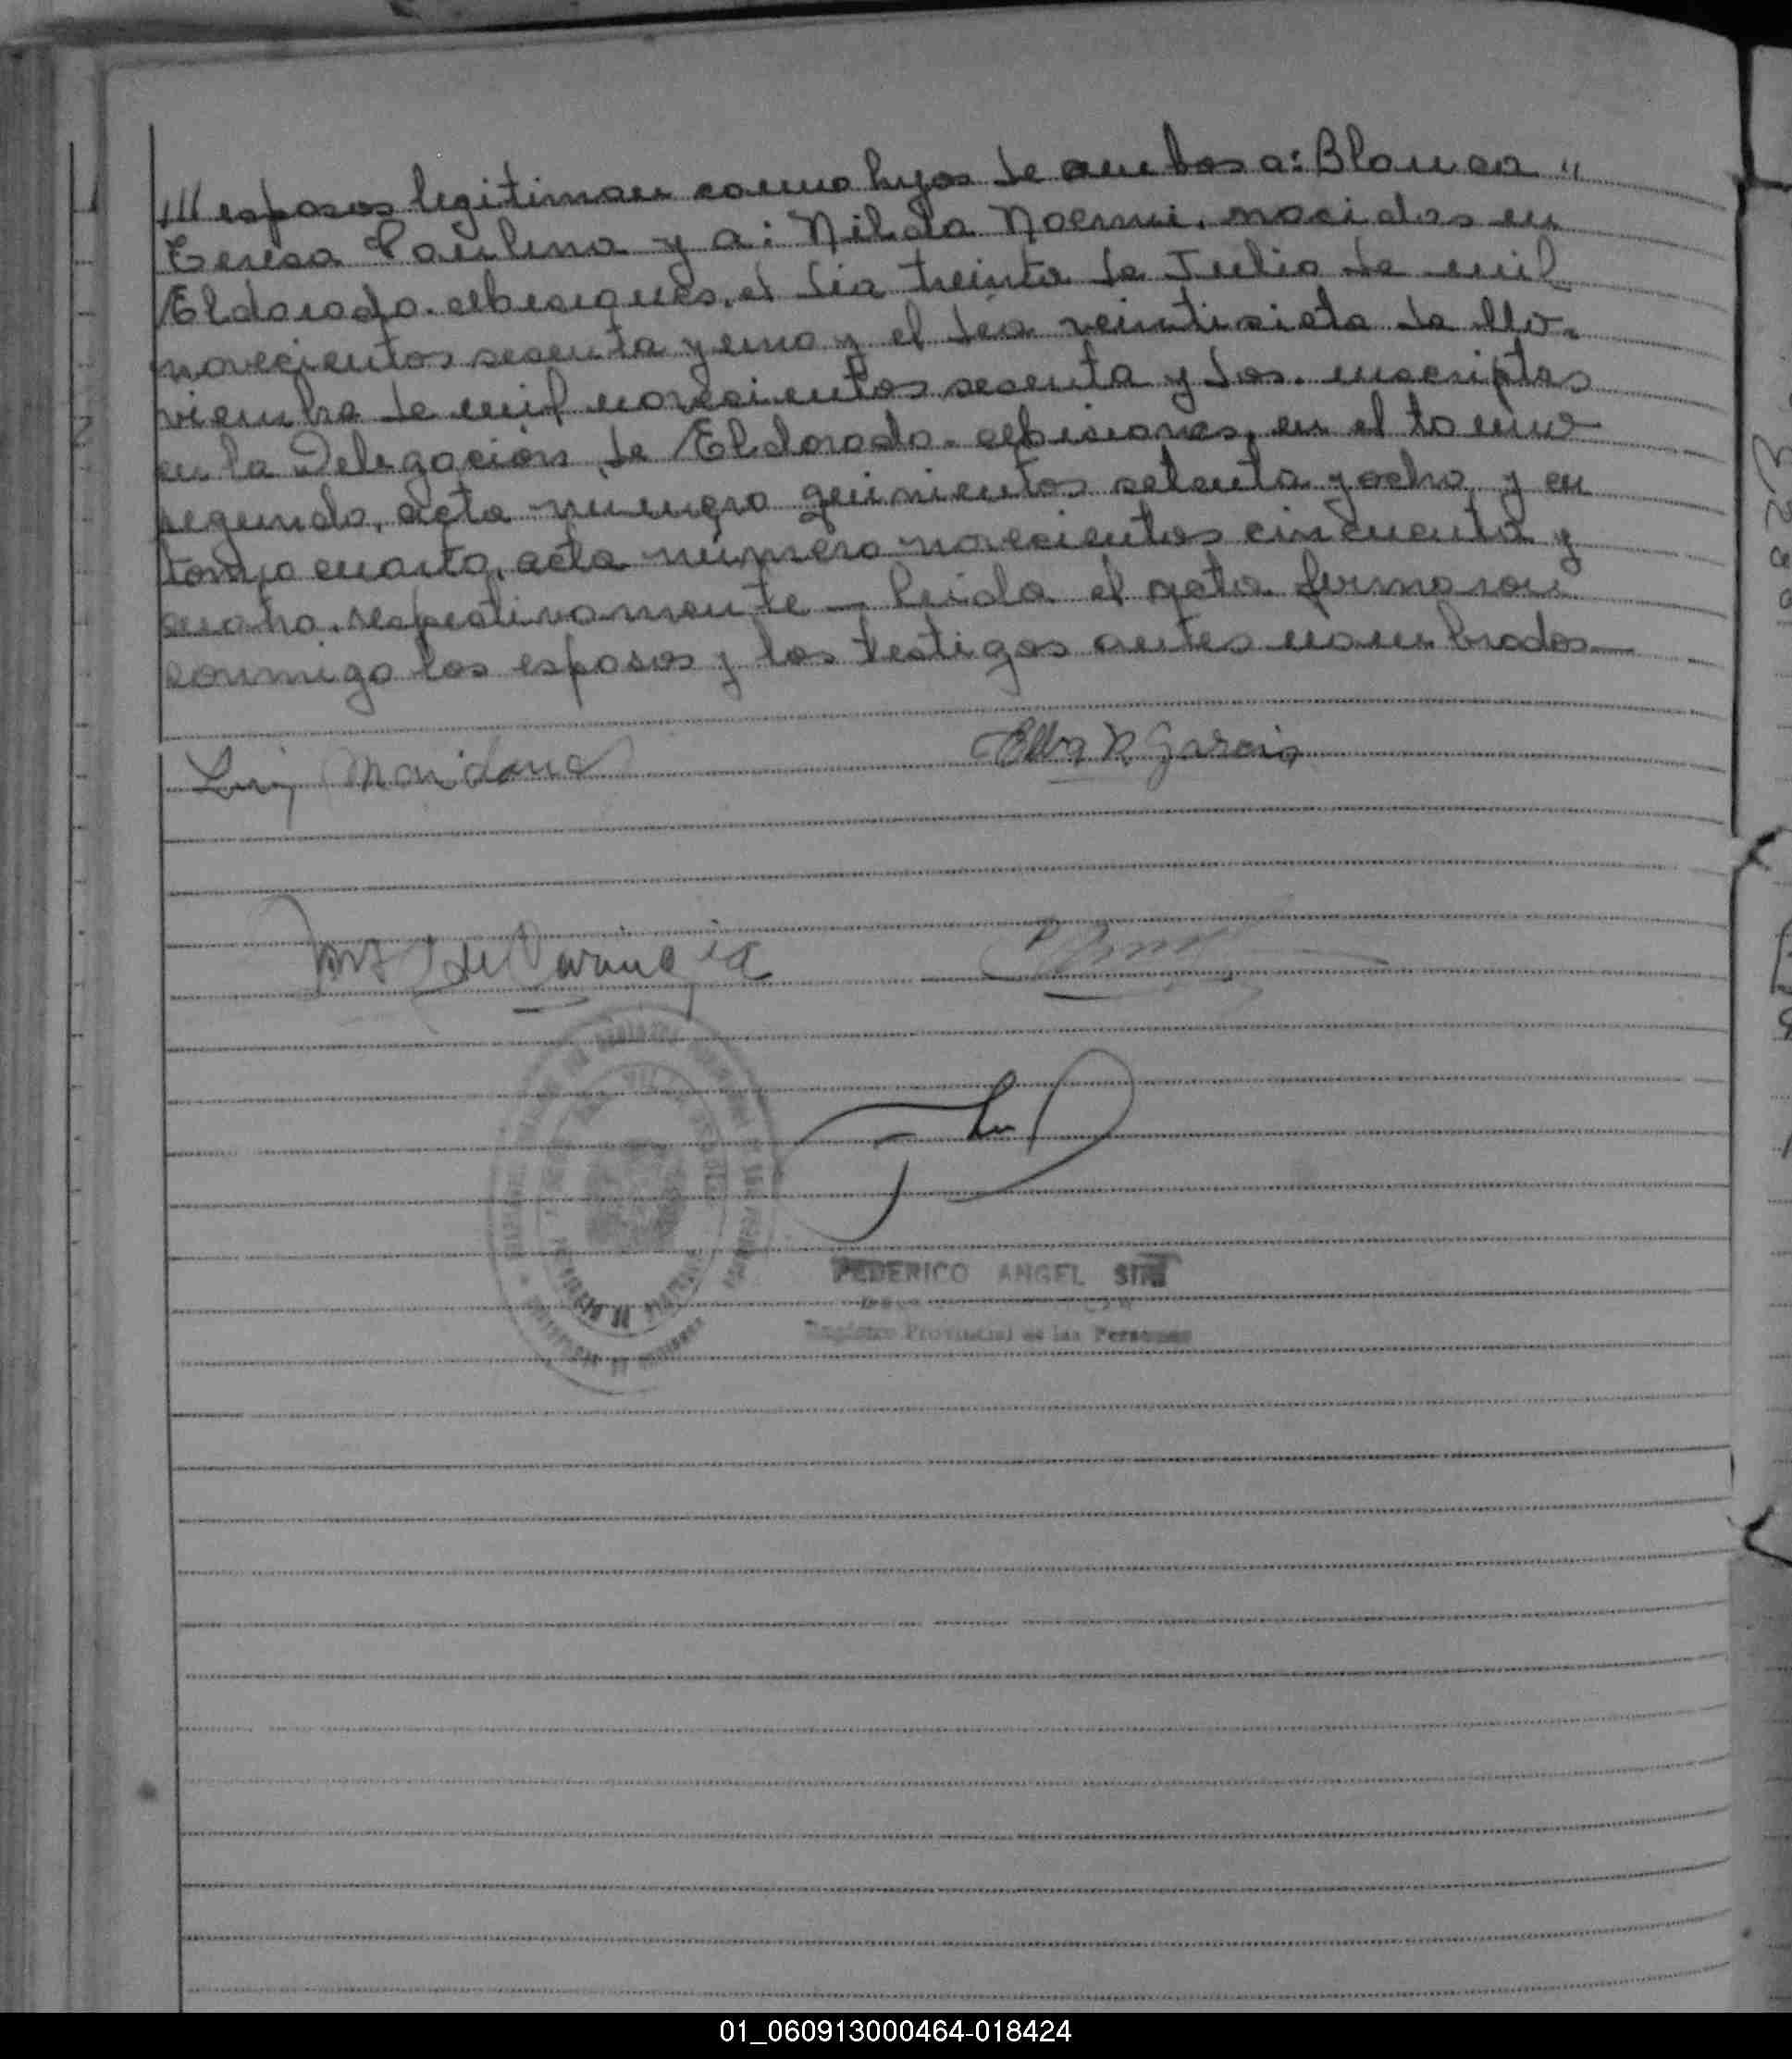 /// esposos legitiman como hijas de ambos a: Blanca "
Teresa Paulina y a: Nilda Noemi, nacidas en
Eldorado. Misiones, el día treinta de Julio de mil
novecientos sesenta y uno y el día veintisiete de No-
viembre de mil novecientos sesenta y dos. inscriptas
en la Delegación de Eldorado. Misiones, en el tomo
segundo, acta número quinientos setenta y ocho, y en
tomo cuarto, acta número novecientos cincuenta y
cuatro. respectivamente — Leida el acta firmaron
conmigo los esposos y los testigos antes nombrados —
Luis Maidana
Elba N Garcia
FEDERICO ANGEL
Registro Provincial de las Personas
01_060913000464-018424